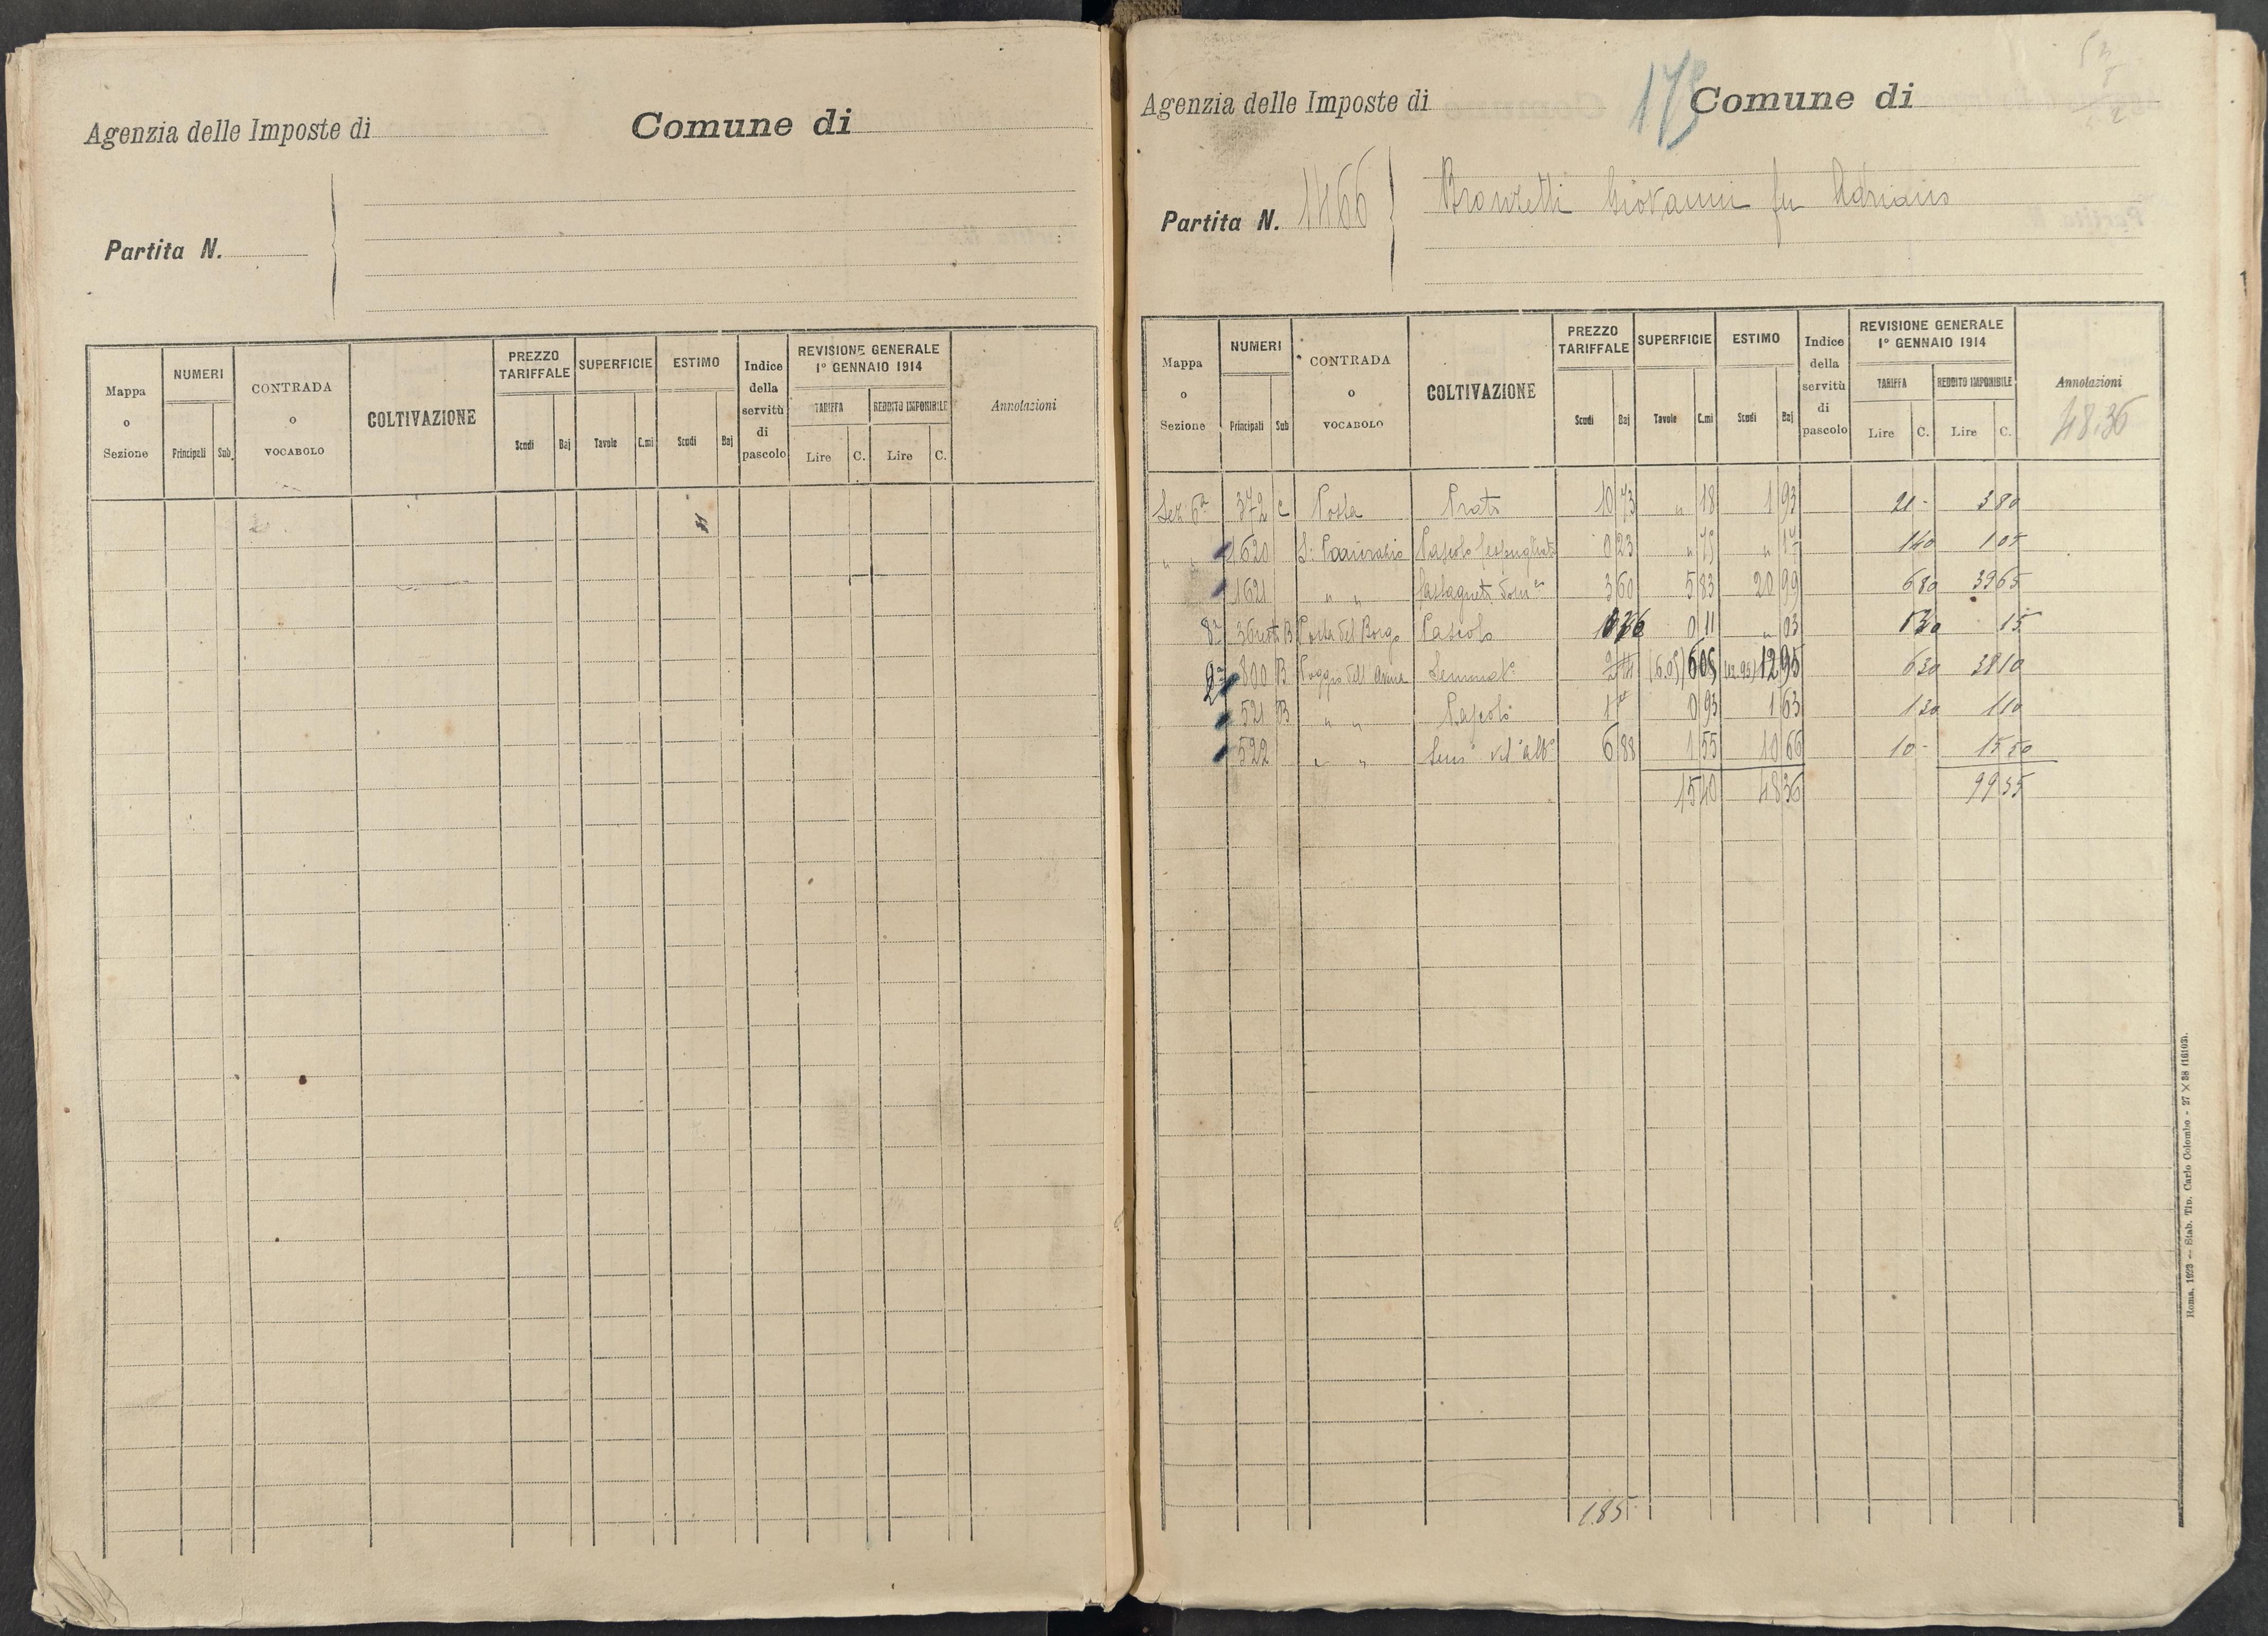 Agenzia delle Imposte di
Comune di
Partita N.
Mappa o Sezione
NUMERI
Principali Sub
CONTRADA o VOCABOLO
COLTIVAZIONE
PREZZO TARIFFALE
Scudi Baj
SUPERFICIE
Tavole C.mi
ESTIMO
Scudi Baj
Indice della servitù di pascolo
REVISIONE GENERALE 1º GENNAIO 1914
TARIFFA
Lire C.
REDDITO IMPONIBILE
Lire C.
Annotazioni
173
Agenzia delle Imposte di
Comune di
Partita N. 1466
Bronzetti Giovanni fu Adriano
Mappa o Sezione
NUMERI
Principali Sub
CONTRADA o VOCABOLO
COLTIVAZIONE
PREZZO TARIFFALE
Scudi Baj
SUPERFICIE
Tavole C.mi
ESTIMO
Scudi Baj
Indice della servitù di pascolo
REVISIONE GENERALE 1º GENNAIO 1914
TARIFFA
Lire C.
REDDITO IMPONIBILE
Lire C.
Annotazioni
48.36
Sez. 6ª 372 C Posta Prato 10 73 " 18 1 93 21 - 3 80
" " 1620 S: Pascolo 0 23 " " 17 1 40 1 05
1621 " " 3 60 5 83 20 99 6 80 39 65
8ª B Porta del Borgo Pascolo 0 11 " 03 1 30 15
9ª 800 B Poggio dell' Seminat° 2 14 (6.05) 6 05 (12.95) 12 95 6 30 38 10
521 B " " Pascolo 0 93 1 63 1 20 1 10
522 " " Sem° vit° alb° 6 88 1 55 10 66 10 - 15 50
15 40 48 36 99 35
1.85
Roma, 1923 — Stab. Tip. Carlo Colombo - 27 × 38 (16103).